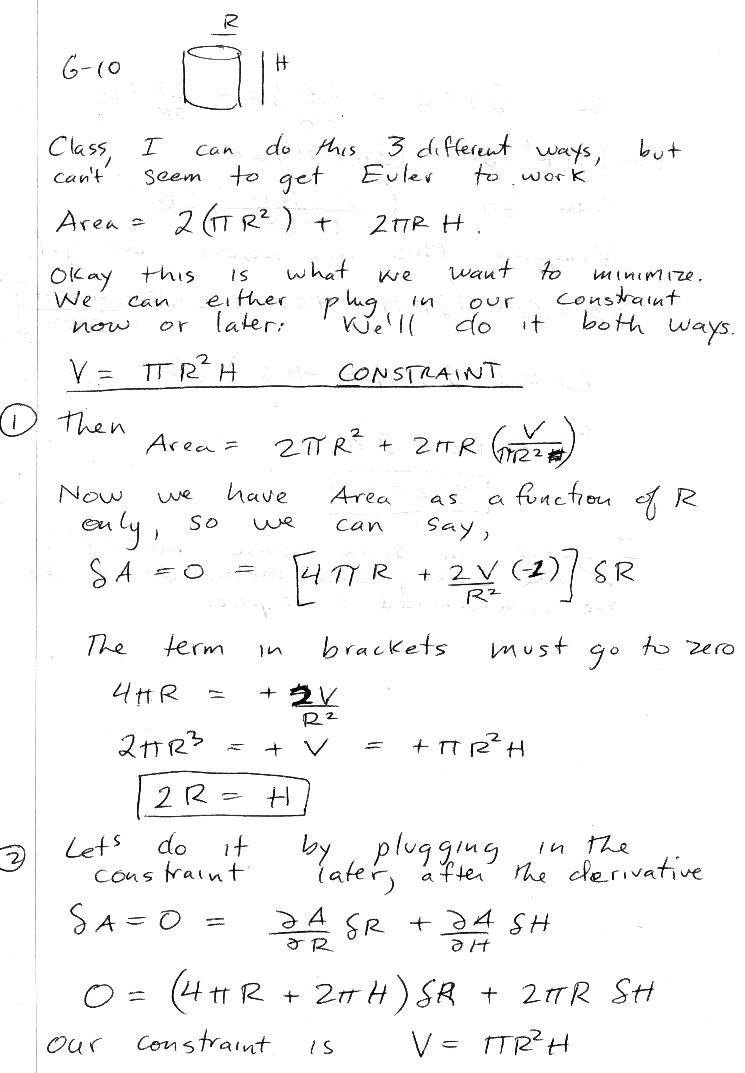 R
6-10
H
Class, I can do this 3 different ways, but
can't seem to get Euler to work
Area = 2(πR²) + 2πR H.
Okay this is what we want to minimize.
We can either plug in our constraint
now or later: We'll do it both ways.
V = πR²H CONSTRAINT
① Then
Area = 2πR² + 2πR (V/πR²)
Now we have Area as a function of R
only, so we can say,
δA = 0 = [4πR + 2V/R² (-1)] δR
The term in brackets must go to zero
4πR = + 2V/R²
2πR³ = + V = + πR²H
2R = H
② Lets do it by plugging in the
constraint later, after the derivative
δA = 0 = ∂A/∂R δR + ∂A/∂H δH
0 = (4πR + 2πH) δR + 2πR δH
Our constraint is V = πR²H